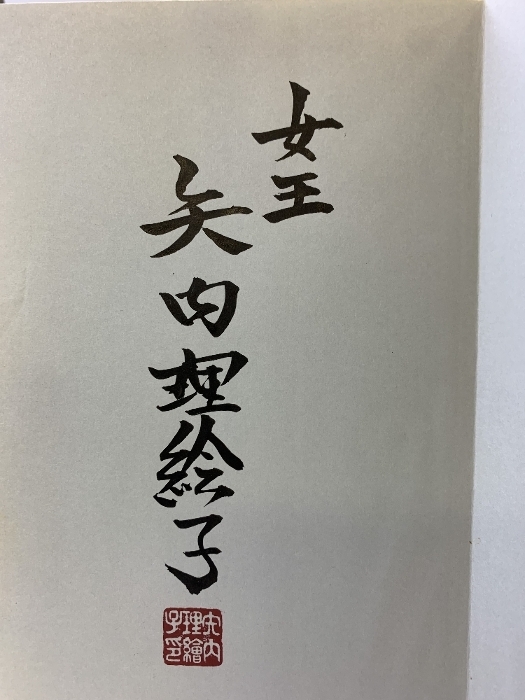 女王
矢内理絵子
矢内
理繪
子印